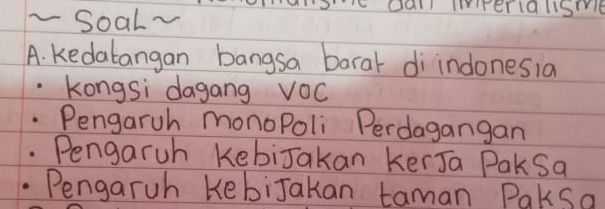 dan imperialisme
~ Soal ~
A. Kedatangan bangsa barat di indonesia
• Kongsi dagang VOC
• Pengaruh monopoli Perdagangan
• Pengaruh Kebijakan Kerja Paksa
• Pengaruh Kebijakan taman Paksa